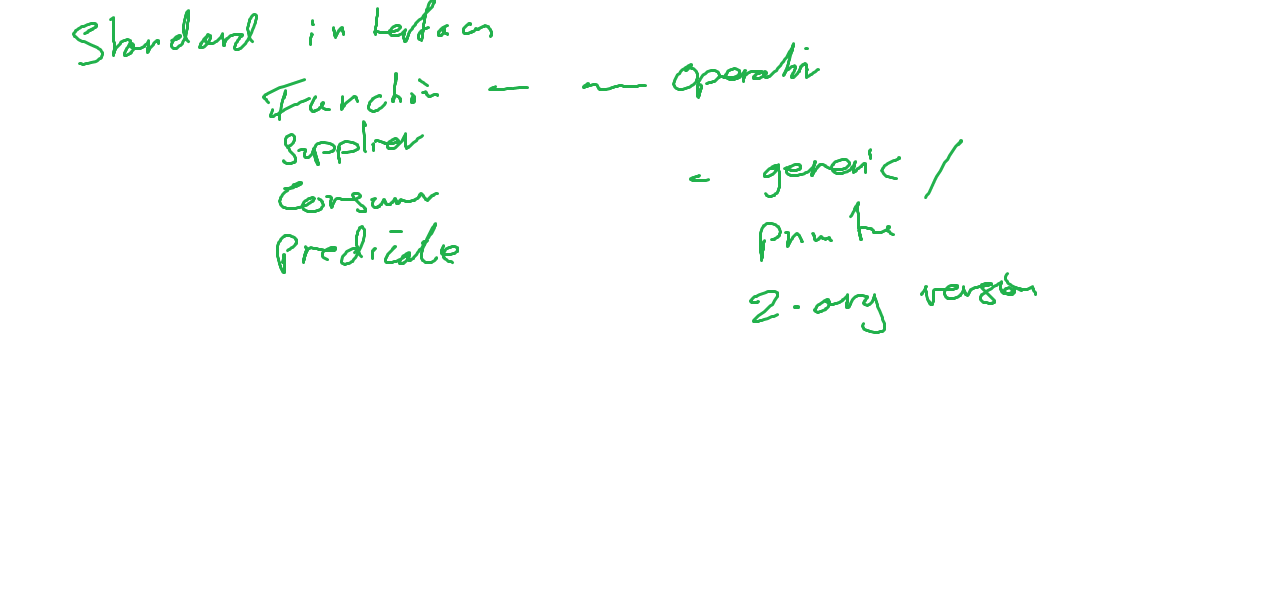 Standard interfaces
Function — — Operator
Supplier
Consumer
Predicate
- generic /
primitive
2-arg version